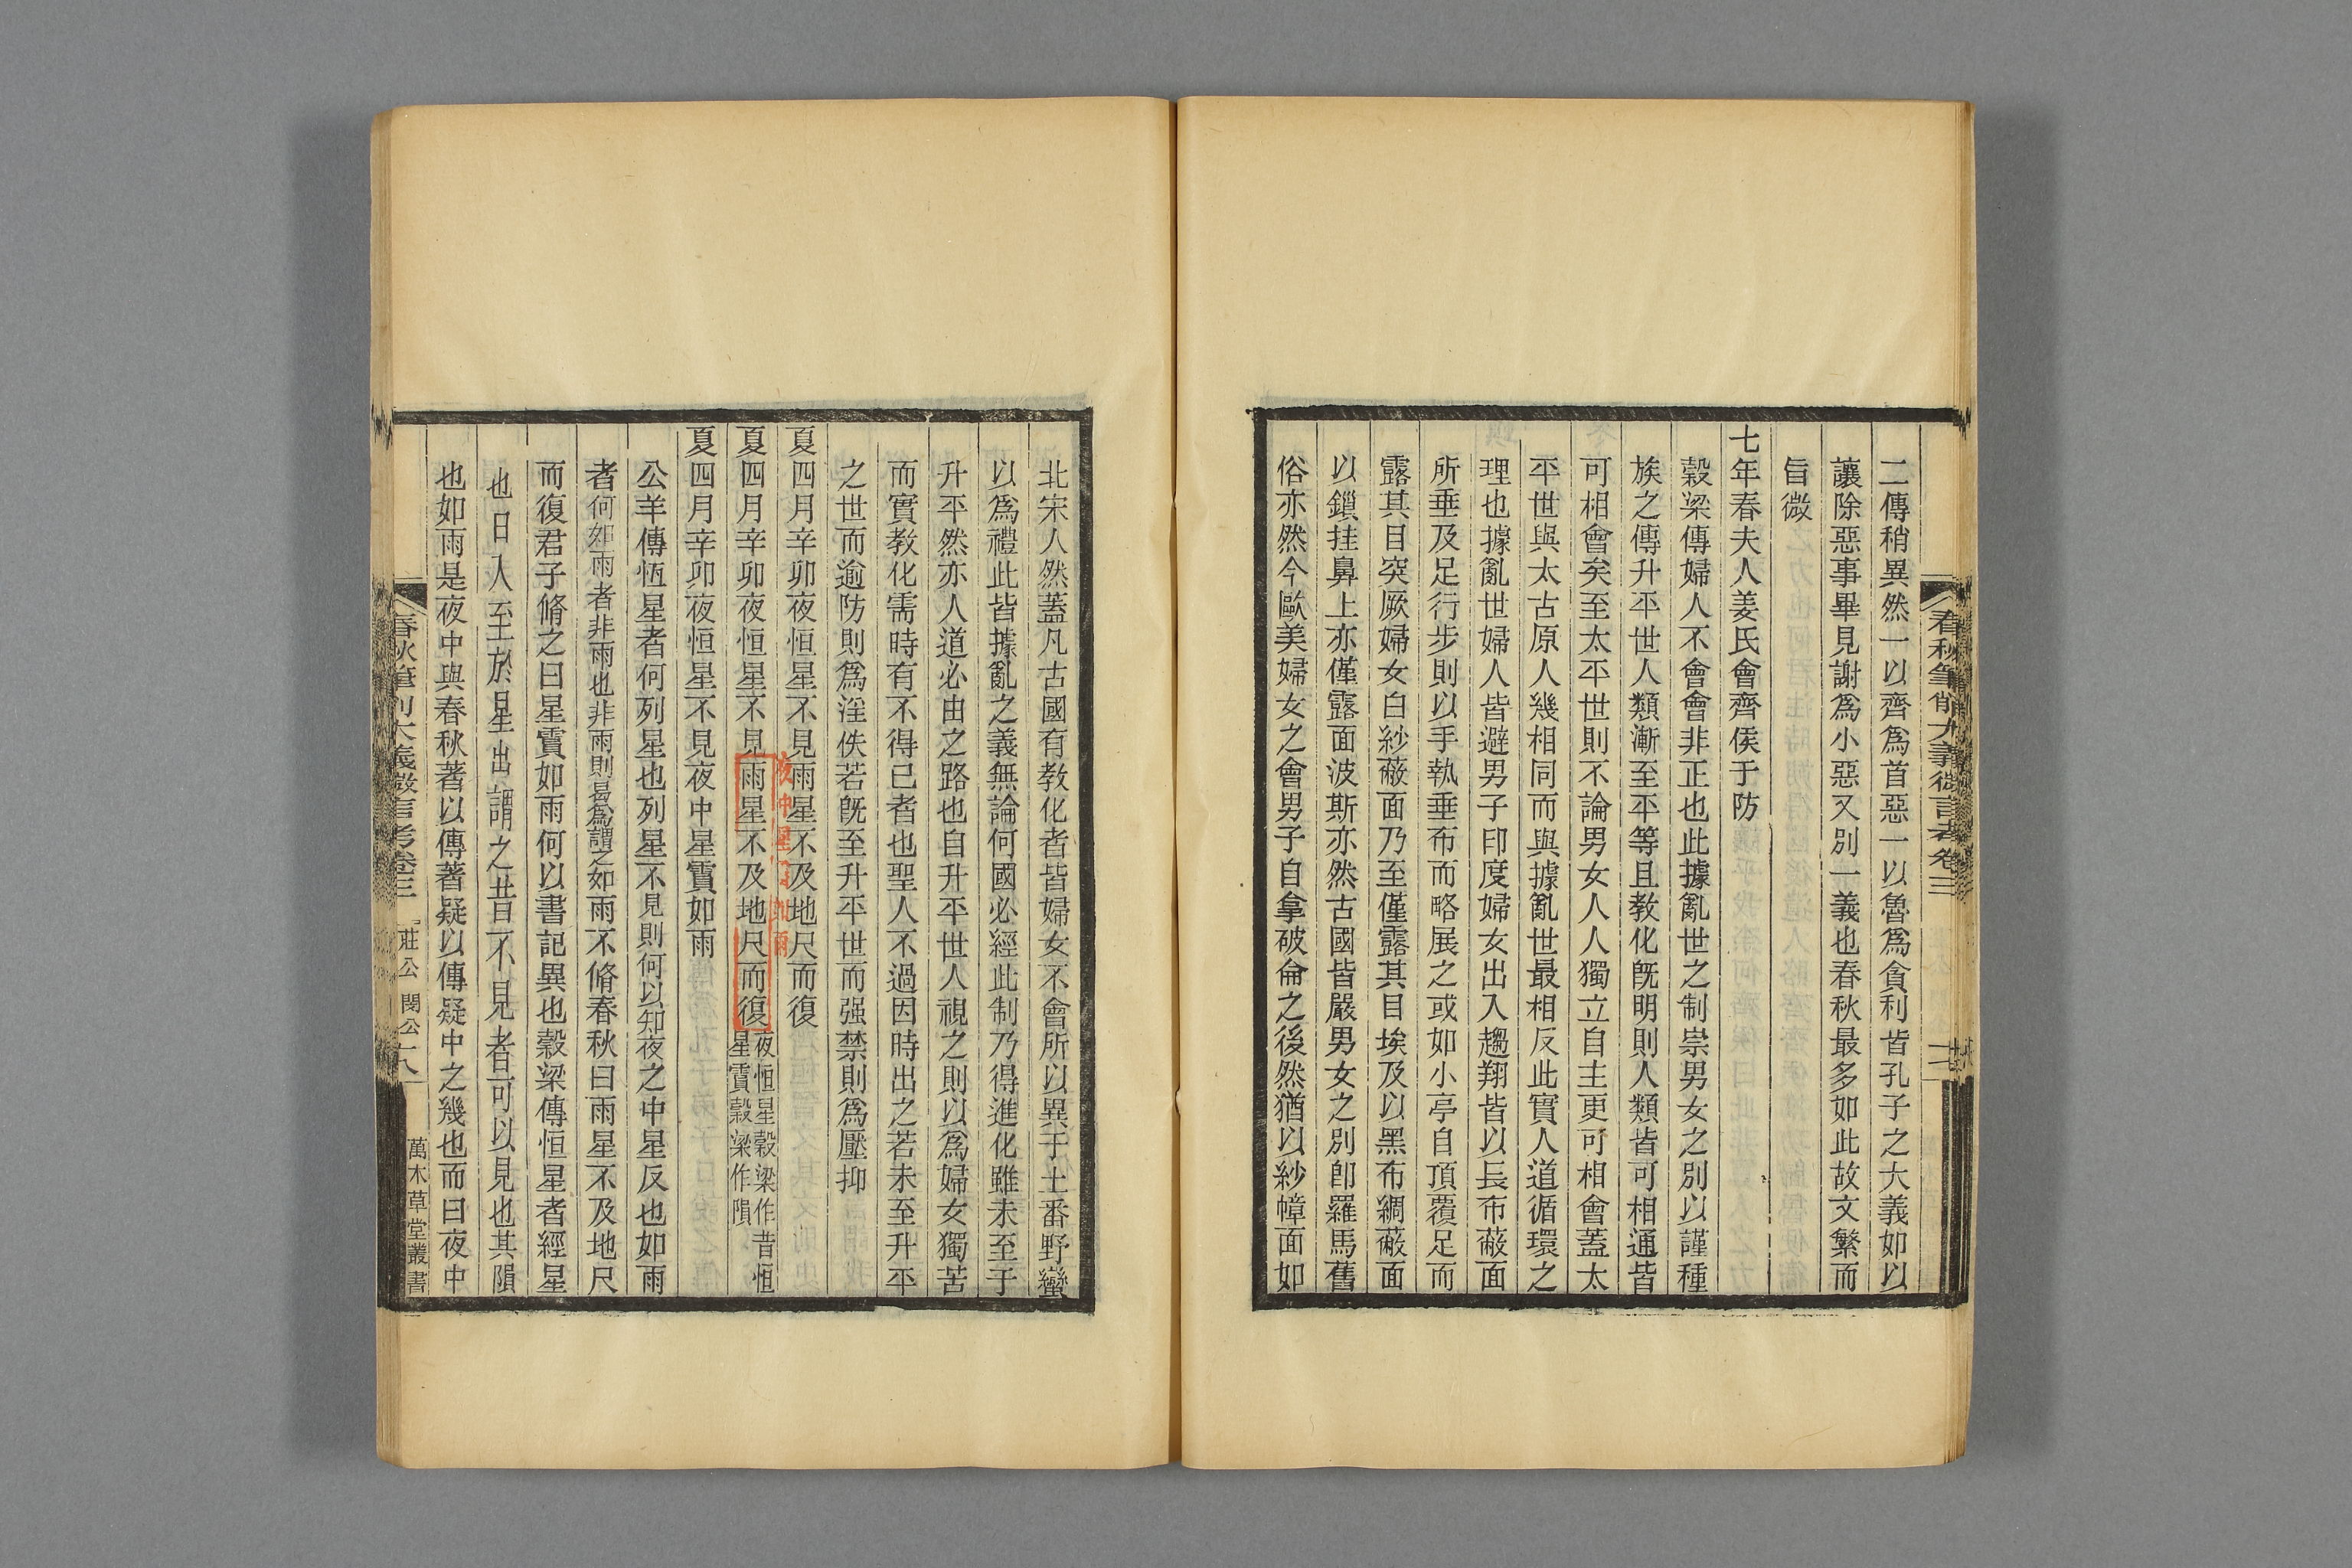 春秋筆削大義微言考卷三
二傳稍異然一以齊爲首惡一以魯爲貪利皆孔子之大義如以
讓除惡事畢見謝爲小惡又別一義也春秋最多如此故文繁而
旨微
七年春夫人姜氏會齊侯于防
穀梁傳婦人不會會非正也此據亂世之制崇男女之別以謹種
族之傳升平世人類漸至平等且教化既明則人類皆可相通皆
可相會矣至太平世則不論男女人人獨立自主更可相會蓋太
平世與太古原人幾相同而與據亂世最相反此實人道循環之
理也據亂世婦人皆避男子印度婦女出入趨翔皆以長布蔽面
所垂及足行步則以手執垂布而略展之或如小亭自頂覆足而
露其目突厥婦女白紗蔽面乃至僅露其目埃及以黑布綢蔽面
以鎖挂鼻上亦僅露面波斯亦然古國皆嚴男女之別卽羅馬舊
俗亦然今歐美婦女之會男子自拿破侖之後然猶以紗幛面如
北宋人然蓋凡古國有教化者皆婦女不會所以異于土番野蠻
以爲禮此皆據亂之義無論何國必經此制乃得進化雖未至于
升平然亦人道必由之路也自升平世人視之則以爲婦女獨苦
而實教化需時有不得已者也聖人不過因時出之若未至升平
之世而逾防則爲淫佚若既至升平世而强禁則爲壓抑
夏四月辛卯夜恒星不見雨星不及地尺而復
夜中星
雨
夏四月辛卯夜恒星不見雨星不及地尺而復夜恒星穀梁作昔恒星霣穀梁作隕
夏四月辛卯夜恒星不見夜中星霣如雨
公羊傳恆星者何列星也列星不見則何以知夜之中星反也如雨
者何如雨者非雨也非雨則曷爲謂之如雨不脩春秋曰雨星不及地尺
而復君子脩之曰星霣如雨何以書記異也穀梁傳恒星者經星
也日入至於星出謂之昔不見者可以見也其隕
也如雨是夜中與春秋著以傳著疑以傳疑中之幾也而曰夜中
春秋筆削大義微言考卷三
莊公 閔公
十八
萬木草堂叢書